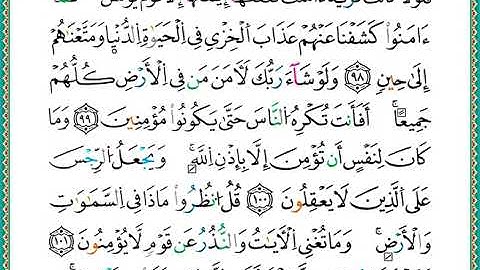 ءَامَنُوا۟ كَشَفْنَا عَنْهُمْ عَذَابَ ٱلْخِزْىِ فِى ٱلْحَيَوٰةِ ٱلدُّنْيَا وَمَتَّعْنَٰهُمْ
إِلَىٰ حِينٍ ٩٨ وَلَوْ شَآءَ رَبُّكَ لَأٓمَنَ مَن فِى ٱلْأَرْضِ كُلُّهُمْ
جَمِيعًا ۚ أَفَأَنتَ تُكْرِهُ ٱلنَّاسَ حَتَّىٰ يَكُونُوا۟ مُؤْمِنِينَ ٩٩ وَمَا
كَانَ لِنَفْسٍ أَن تُؤْمِنَ إِلَّا بِإِذْنِ ٱللَّهِ ۚ وَيَجْعَلُ ٱلرِّجْسَ
عَلَى ٱلَّذِينَ لَا يَعْقِلُونَ ١٠٠ قُلِ ٱنظُرُوا۟ مَاذَا فِى ٱلسَّمَٰوَٰتِ
وَٱلْأَرْضِ ۚ وَمَا تُغْنِى ٱلْأَيَٰتُ وَٱلنُّذُرُ عَن قَوْمٍ لَّا يُؤْمِنُونَ ١٠١